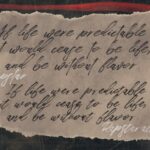 If life were predictable
it would cease to be life,
and be without flavor
If life were predictable
it would cease to be life,
and be without flavor